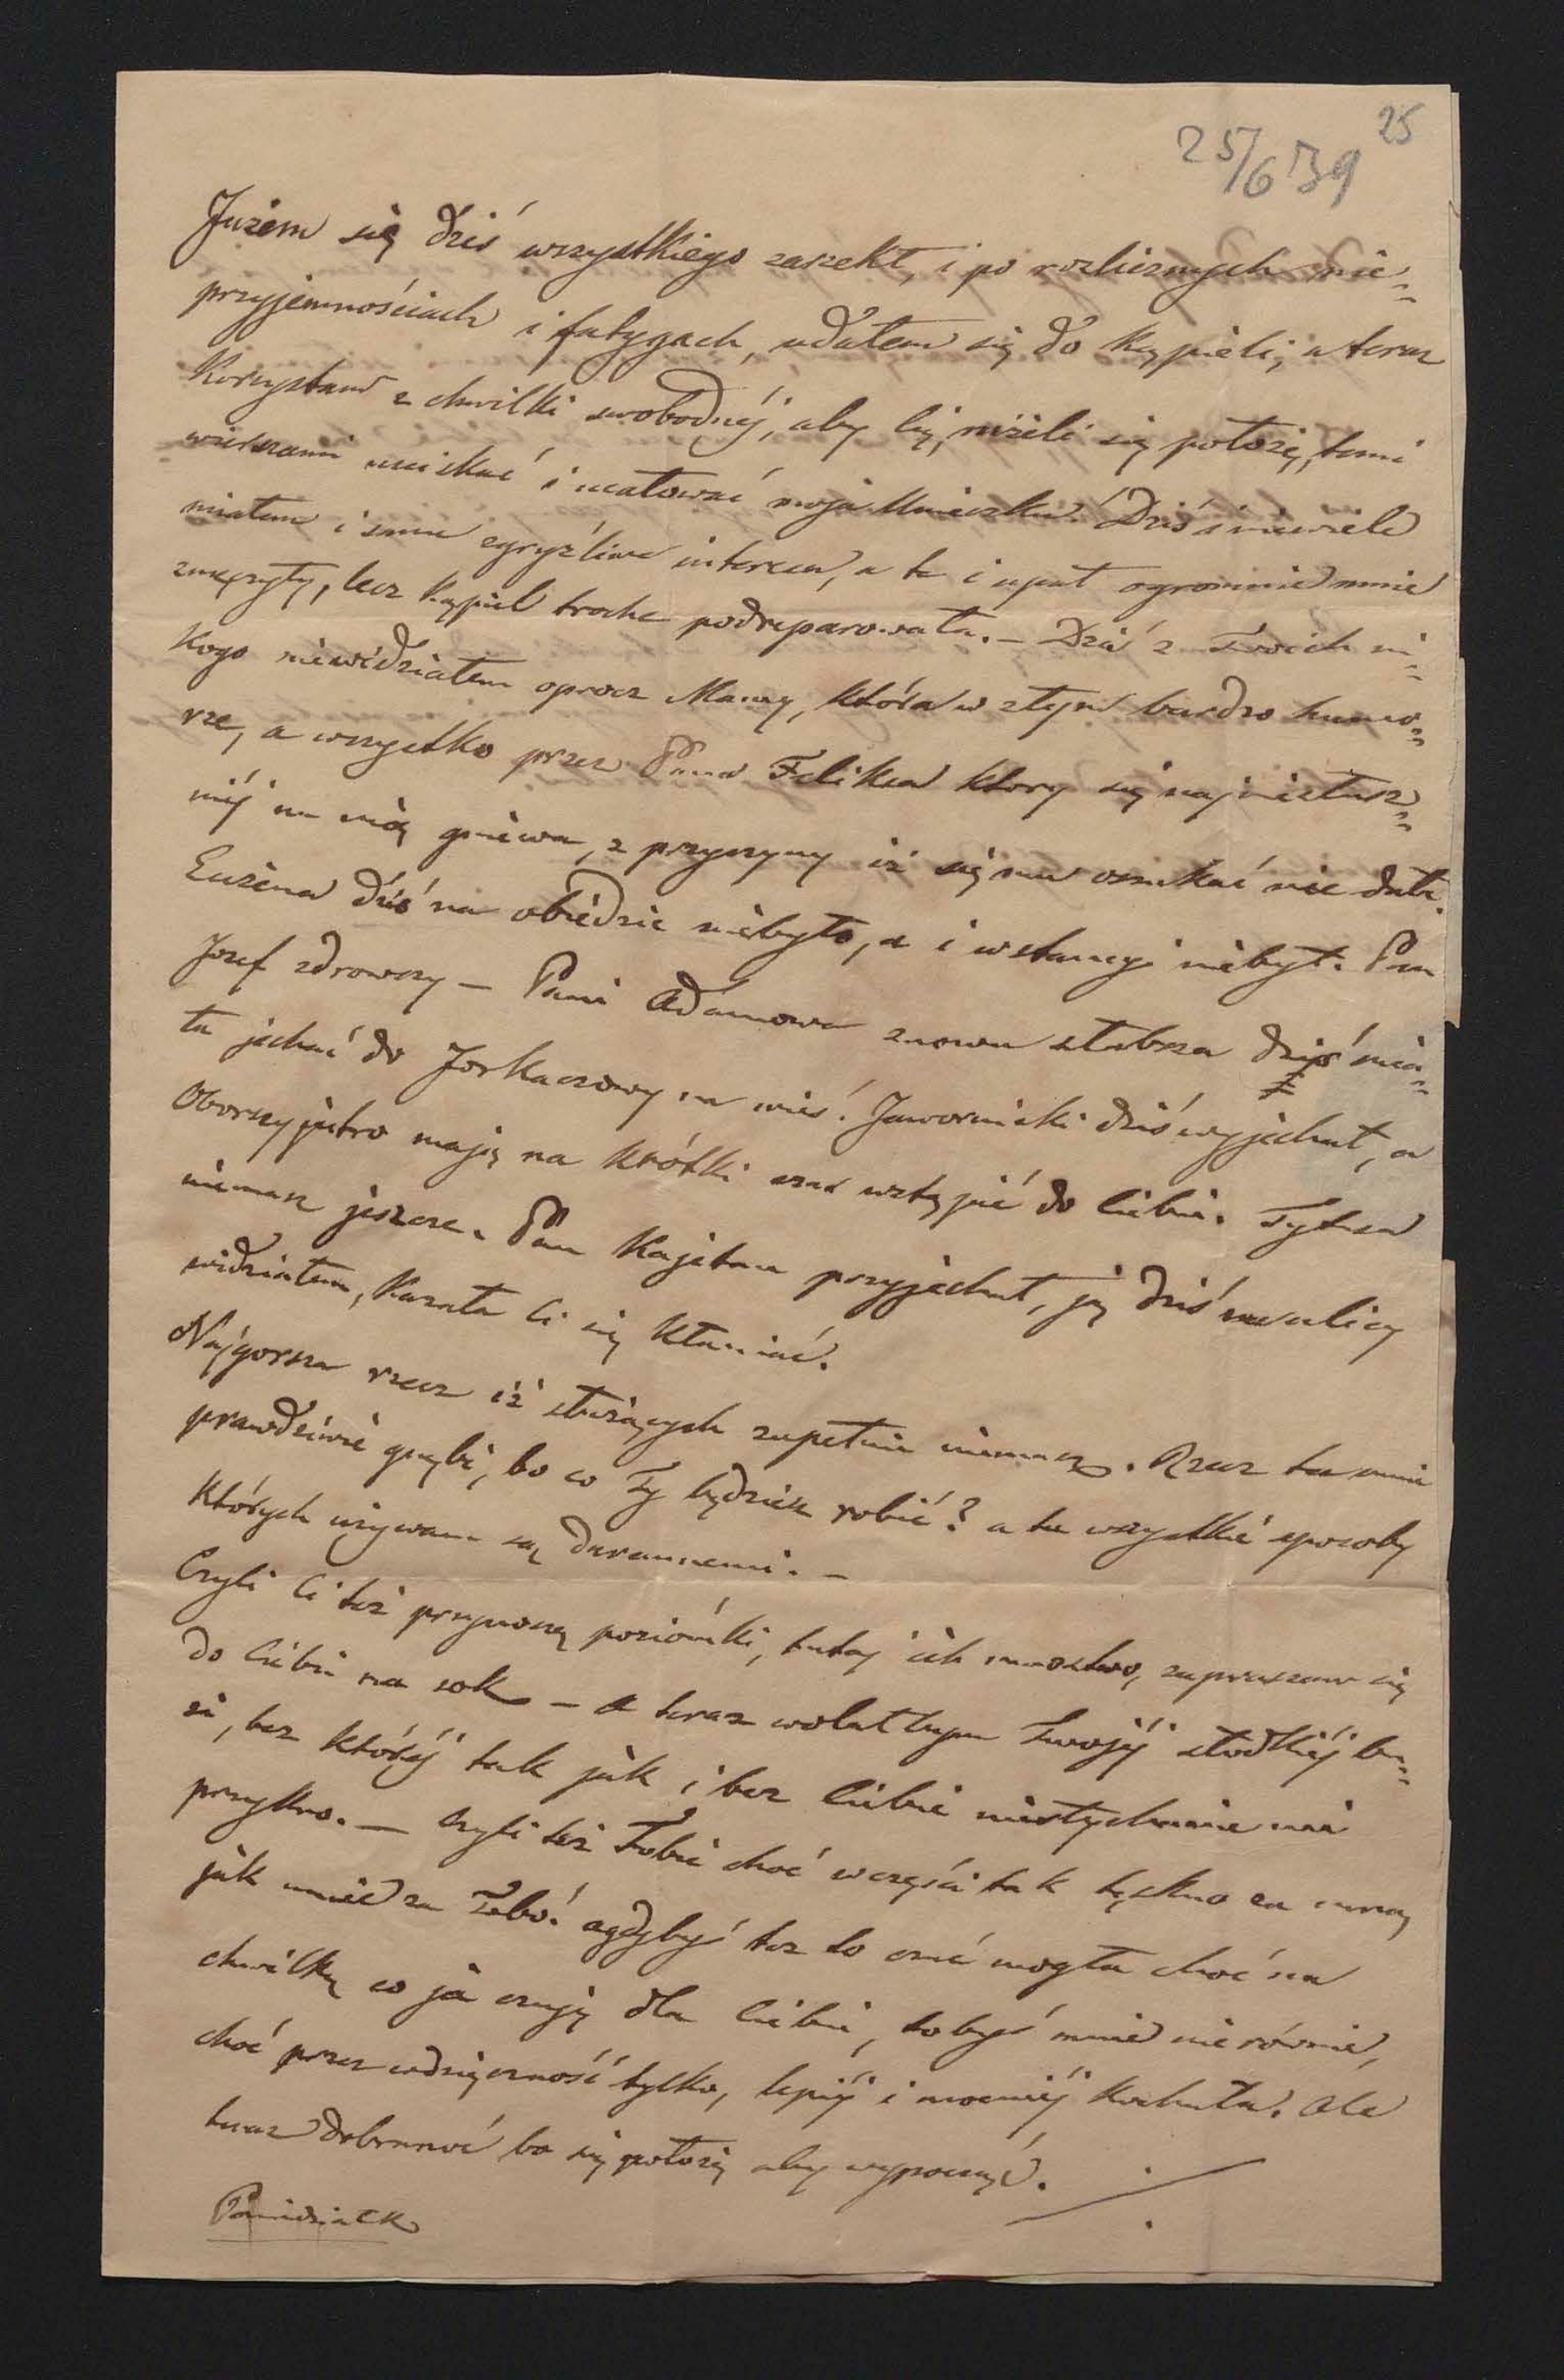 25
25/6 39
Jużem się dziś wszystkiego zarzekł, i po rozlicznych nie=
przyjemnościach i fatygach, udałem się do kąpieli, a teraz
korzystam z chwilki swobodnéj, aby Cię, niżeli się położę, temi
wierszami uciskać i ucałować moja Uniczku. Dziś i niewiele
miałem i same zgryźliwe interesa, a te i upał ogromnie mnie
zmęczyły, lecz kąpiel troche podreparowała. – Dziś z Twoich ni=
kogo niewidziałem oprocz Mamy, która w złym bardzo humo=
rze, a wszystko przez Pana Felixa ktory się najniesłusz=
niéj na nią gniewa, z przyczyny iż się mu oszukać nie dała.
Eužena dziś na obiedzie niebyło, a i w stancyi niebył. Pan
Jozef zdrowszy – Pani Adamowa znowu słabsza dziś mia=
ła jechać do Jorkaczowy na wieś. Jawornicki dziś wyjechał, a
Oborscy jutro mają na krótki czas wstąpić do Ciebie. Tytusa
niemasz jeszcze. Pan Kajetan przyjechał, ją dziś na ulicy
widziałem, kazała Ci się kłaniać.
Najgorsza rzecz iż służących zupełnie niemasz. Rzecz ta mnie
prawdziwie gnębi, bo co Ty będziesz robić? a tu wszystkie sposoby
których używam są daremnemi. –
Czyli Ci też przynoszą poziómki, tutaj ich mnostwo, zapraszam się
do Ciebie na sok – a teraz wolałbym Twojéj słodkiéj bu=
zi, bez któréj tak jak i bez Ciebie niesłychanie mi
przykro. – Czyli też Tobie choć w części tak tęskno za mną
jak mnie za Tobó. agdybyś też to czuć mogła choć na
chwilkę co ja czuję dla Ciebie, tobyś mnie nierównie,
choć przez wdzięczność tylko, lepiéj i mocniéj kochała. Ale
teraz dobranoc bo się położę aby wypocząć.
Poniedziałek